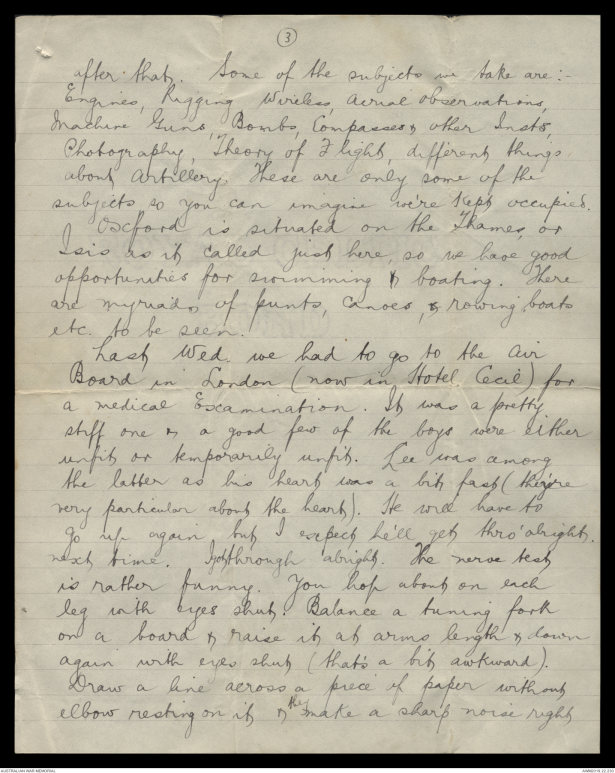 3
after that. Some of the subjects we take are:-
Engines, Rigging Wireless, Aerial Observations,
Machine Guns, Bombs, Compasses & other Insts,
Photography, Theory of Flight, different things
about Artillery. These are only some of the
subjects so you can imagine we're kept occupied.
Oxford is situated on the Thames, or
Isis as it called just here, so we have good
opportunities for swimming & boating. There
are myriads of punts, canoes, & rowing boats
etc. to be seen.
Last Wed. we had to go to the Air
Board in London (now in Hotel Cecil) for
a medical Examination. It was a pretty
stiff one & a good few of the boys were either
unfit or temporarily unfit. Lee was among
the latter as his heart was a bit fast (they're
very particular about the heart). He will have to
go up again but I expect he'll get thro' alright.
next time. I got through alright. The nerve test
is rather funny. You hop about on each
leg with eyes shut. Balance a tuning fork
on a board & raise it at arms length & down
again with eyes shut (that's a bit awkward).
Draw a line across a piece of paper without
elbow resting on it & they make a sharp noise right
AUSTRALIAN WAR MEMORIAL